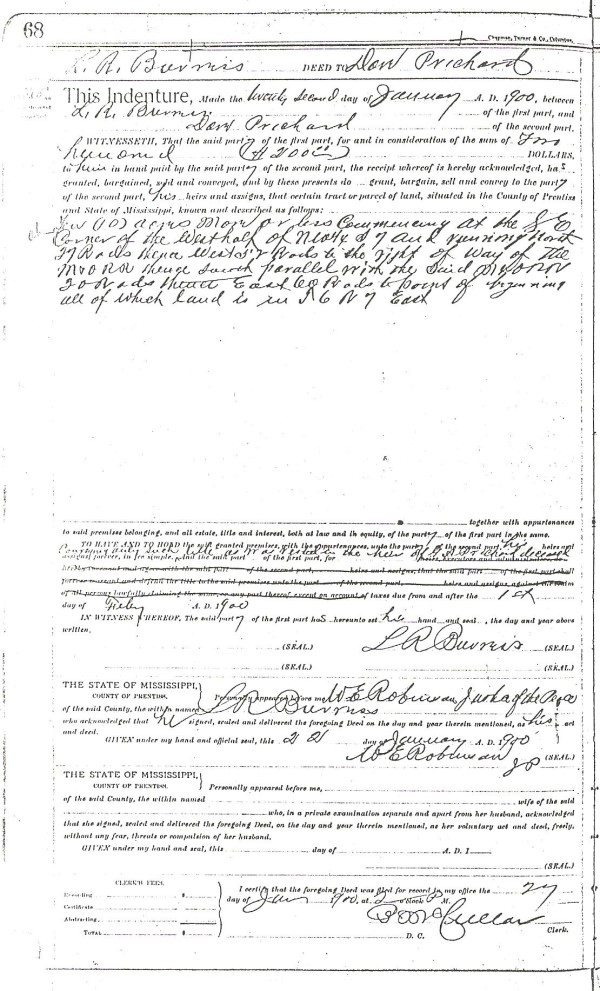 68
Chapman, Turner & Co., Columbus.
L. R. Burress DEED TO Dow Prichard
This Indenture, Made the twenty second day of January A. D. 1900, between
L. R. Burress of the first part, and
Dow Prichard of the second part,
WITNESSETH, That the said party of the first part, for and in consideration of the sum of Two
Hundred ($200.00) DOLLARS,
to him in hand paid by the said party of the second part, the receipt whereof is hereby acknowledged, has
granted, bargained, sold and conveyed, and by these presents do grant, bargain, sell and convey to the party
of the second part, his heirs and assigns, that certain tract or parcel of land, situated in the County of Prentiss
and State of Mississippi, known and described as follows:
Ten (10) acres More or less Commencing at the S E
Corner of the West half of S 7 and running North
Rods thence West Rods to the right of Way of the
M & O R R thence South parallel with the Said M & O R R
20 Rods thence East 60 Rods to point of beginning
all of which land is in T 6 R 7 East
together with appurtenances
to said premises belonging, and all estate, title and interest, both at law and in equity, of the party of the first part in the same.
TO HAVE AND TO HOLD the said granted premises, with the appurtenances, unto the party of the second part, his heirs and
assigns forever, in fee simple, And the said part of the first part, for heirs, executors and administrators
Conveying only such title as was Vested in the heir of deceased
hereby covenant and agree with the said part of the second part, heirs and assigns, that the said part of the first part shall
forever warrant and defend the title to the said premises unto the part of the second part, heirs and assigns, against the claim
of all persons lawfully claiming the same, or any part thereof except on account of taxes due from and after the 1st
day of Feby A. D. 1900
IN WITNESS WHEREOF, The said party of the first part has hereunto set his hand and seal, the day and year above
written.
(SEAL) L R Burress (SEAL)
(SEAL) (SEAL)
THE STATE OF MISSISSIPPI,
COUNTY OF PRENTISS. Personally appeared before me, W E Robinson, Justice of the Peace
of the said County, the within named L R Burress
who acknowledged that he signed, sealed and delivered the foregoing Deed on the day and year therein mentioned, as his act
and deed.
GIVEN under my hand and official seal, this 22 day of January A. D. 1900
W E Robinson J P (SEAL)
THE STATE OF MISSISSIPPI,
COUNTY OF PRENTISS. Personally appeared before me,
of the said County, the within named wife of the said
who, in a private examination separate and apart from her husband, acknowledged
that she signed, sealed and delivered the foregoing Deed, on the day and year therein mentioned, as her voluntary act and deed, freely,
without any fear, threats or compulsion of her husband.
GIVEN under my hand and seal, this day of A. D. 1
(SEAL)
CLERK'S FEES.
Recording $
Certificate
Abstracting
TOTAL $
I certify that the foregoing Deed was filed for record in my office the 27
day of Jan 1900, at 2 o'clock P M.
Clerk.
D. C.